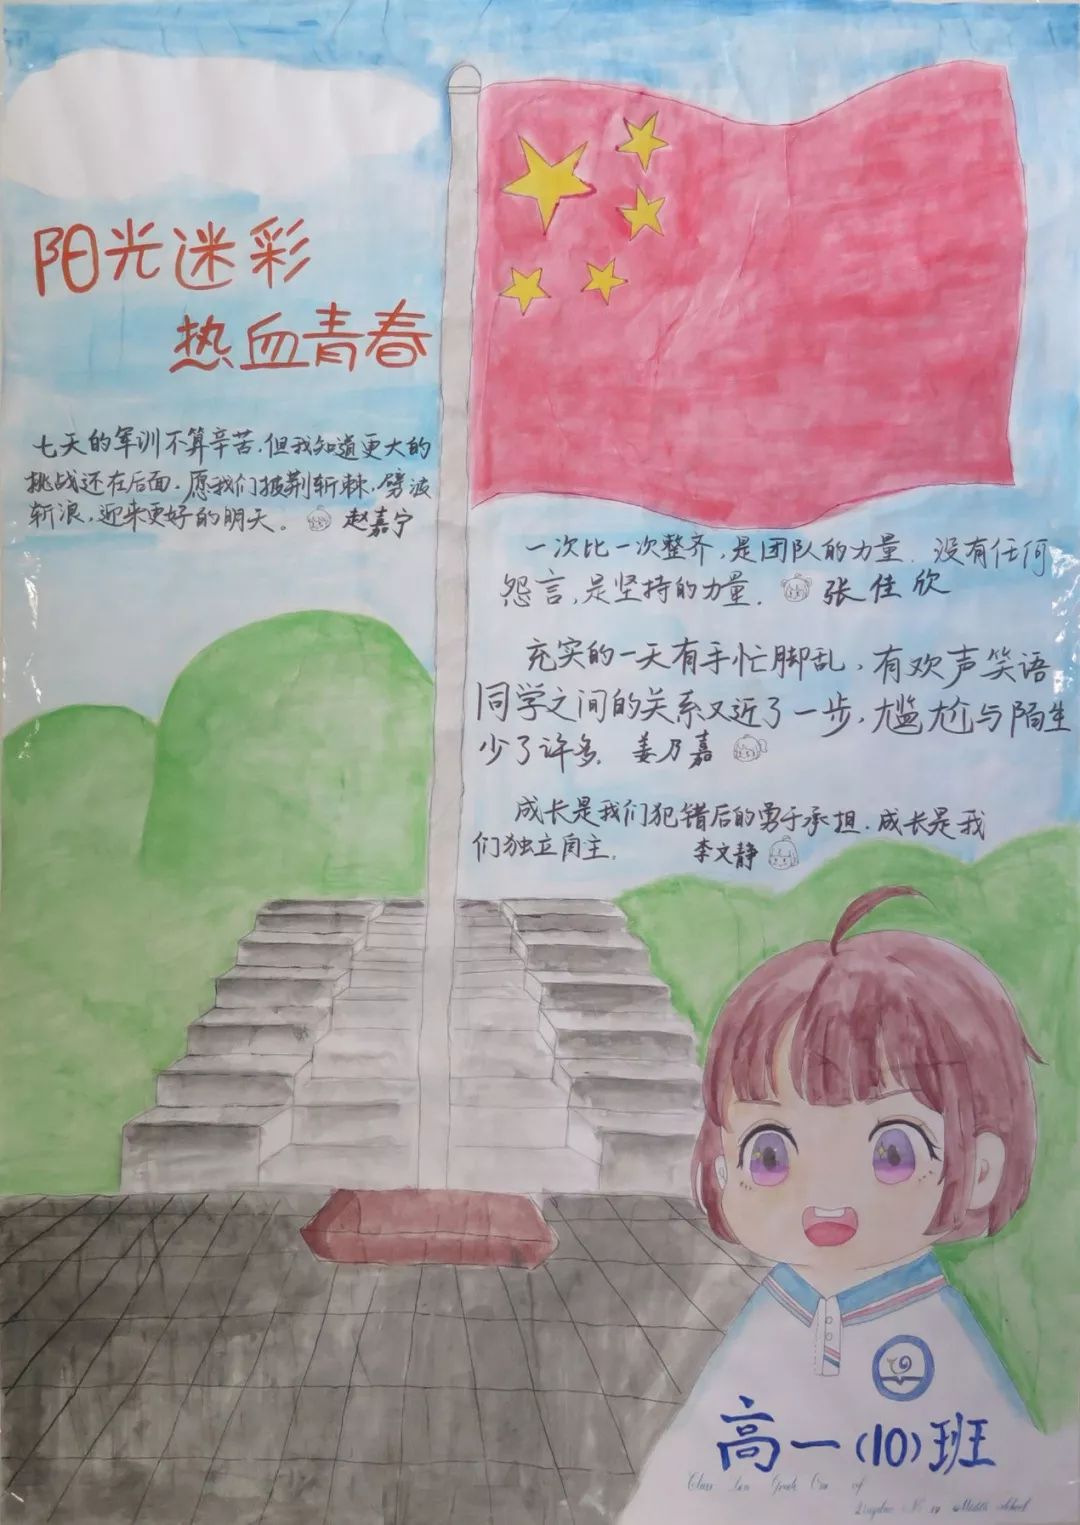 阳光迷彩
热血青春
七天的军训不算辛苦,但我知道更大的
挑战还在后面,愿我们披荆斩棘,劈波
斩浪,迎来更好的明天。 赵嘉宁
一次比一次整齐,是团队的力量.没有任何
怨言,是坚持的力量. 张佳欣
充实的一天有手忙脚乱,有欢声笑语
同学之间的关系又近了一步,尴尬与陌生
少了许多. 姜乃嘉
成长是我们犯错后的勇于承担.成长是我
们独立自主. 李文静
高一(10)班
Class Ten Grade One of
Middle School